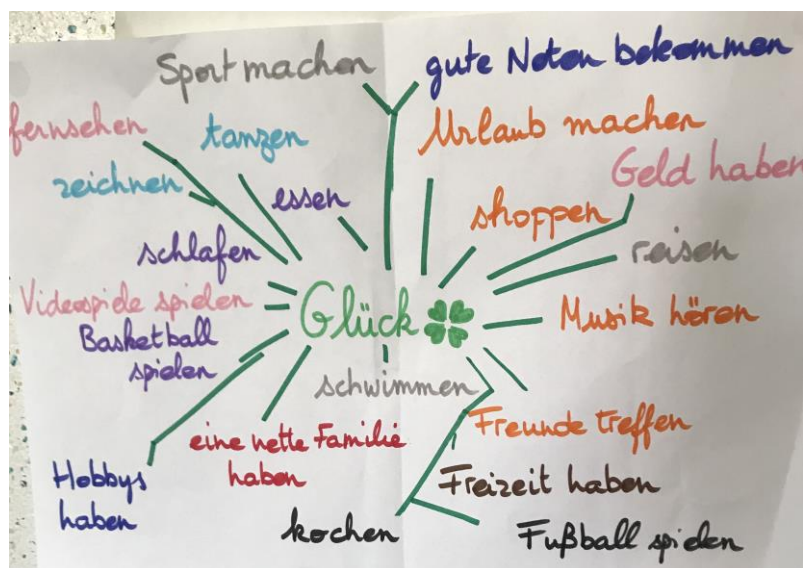 Sport machen
gute Noten bekommen
fernsehen
tanzen
Urlaub machen
Geld haben
zeichnen
essen
shoppen
schlafen
reisen
Videospiele spielen
Glück
Musik hören
Basketball
spielen
schwimmen
Freunde treffen
eine nette Familie
haben
Hobbys
haben
Freizeit haben
kochen
Fußball spielen